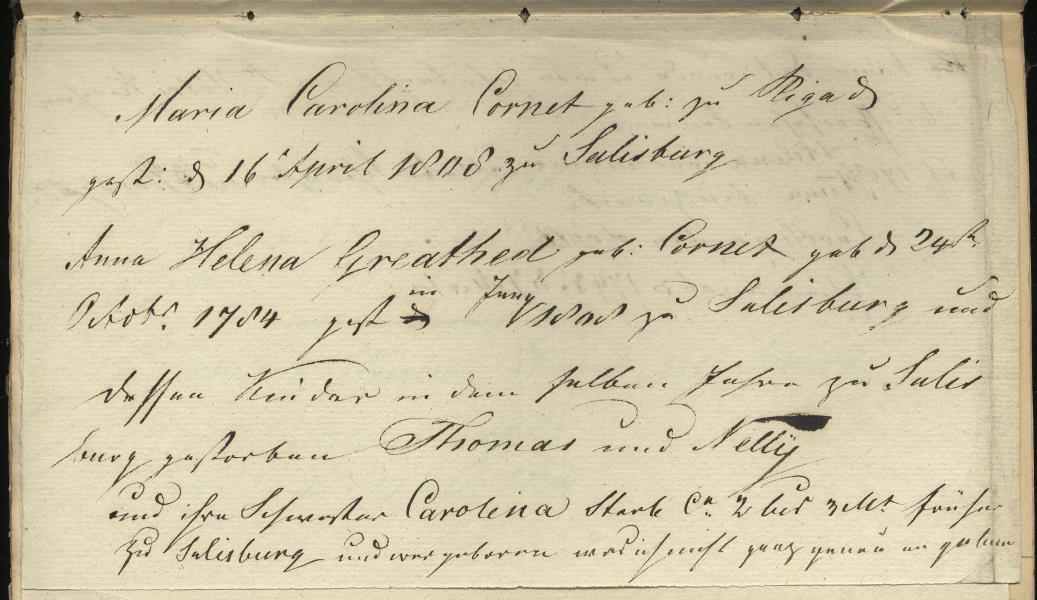 Maria Carolina Cornet geb: zu Riga d
gest: d 16 April 1808 zu Salisburg
Anna Helena Greathed geb: Cornet geb d 24st
Octobr. 1784 gest in Juny 1808 zu Salisburg und
dessen Kinder in dem selben Jahre zu Salis
burg gestorben Thomas und Nelly
und ihre Schwester Carolina Starb Ca. 2 bis 3 Mt früher
zu Salisburg und wer geboren weis ich nicht ganz genau an geben